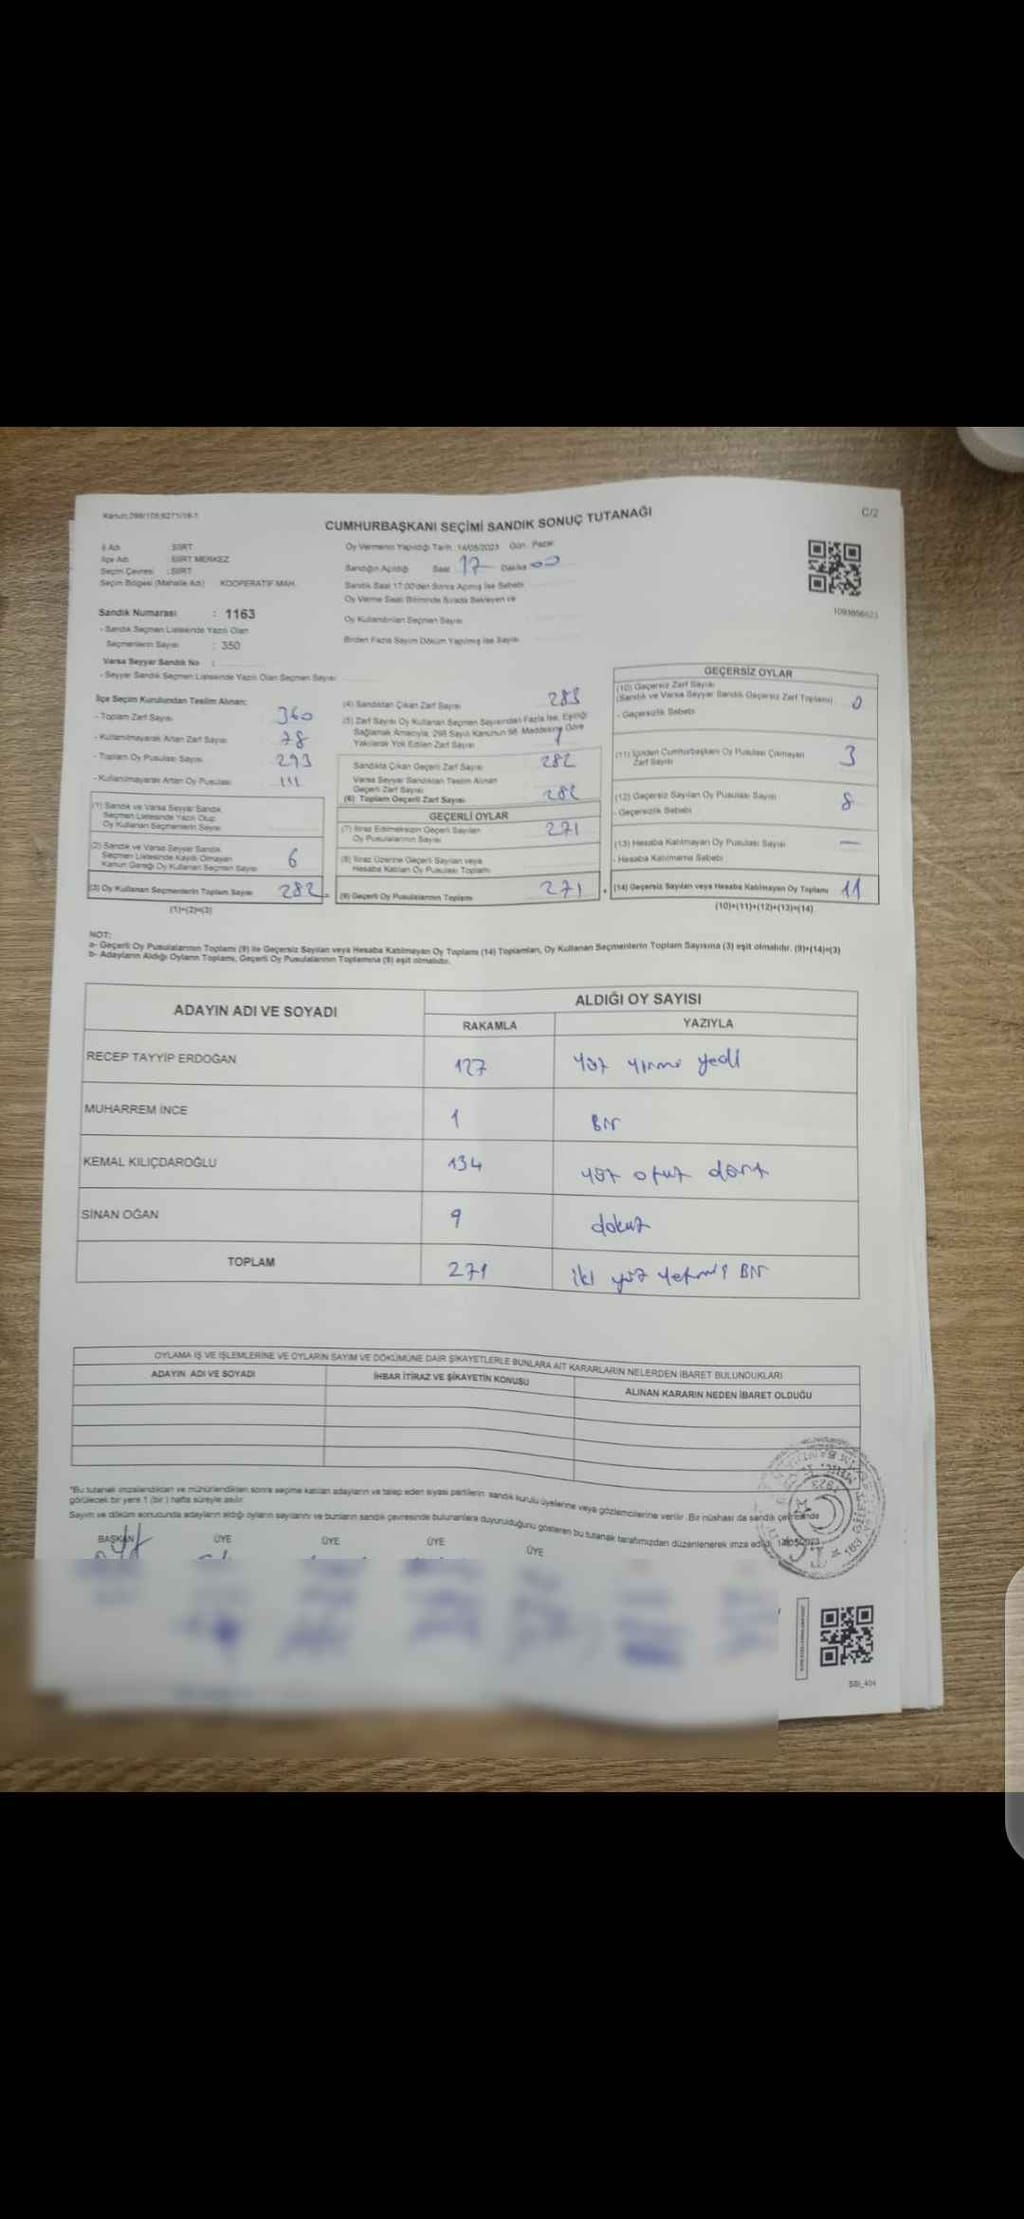 Kanun:298/105,6271/18-1
C/2
CUMHURBAŞKANI SEÇİMİ SANDIK SONUÇ TUTANAĞI
İl Adı : SİİRT
İlçe Adı : SİİRT MERKEZ
Seçim Çevresi : SİİRT
Seçim Bölgesi (Mahalle Adı) KOOPERATİF MAH.
Sandık Numarası : 1163
- Sandık Seçmen Listesinde Yazılı Olan
Seçmenlerin Sayısı : 350
Varsa Seyyar Sandık No :
- Seyyar Sandık Seçmen Listesinde Yazılı Olan Seçmen Sayısı
Oy Vermenin Yapıldığı Tarih : 14/05/2023 Gün : Pazar
Sandığın Açıldığı Saat 17 Dakika 00
Sandık Saat 17:00'den Sonra Açılmış İse Sebebi
Oy Verme Saati Bitiminde Sırada Bekleyen ve
Oy Kullandırılan Seçmen Sayısı
Birden Fazla Sayım Döküm Yapılmış İse Sayısı
İlçe Seçim Kurulundan Teslim Alınan:
- Toplam Zarf Sayısı 360
- Kullanılmayarak Artan Zarf Sayısı 78
- Toplam Oy Pusulası Sayısı
- Kullanılmayarak Artan Oy Pusulası 111
(1) Sandık ve Varsa Seyyar Sandık
Seçmen Listesinde Yazılı Olup
Oy Kullanan Seçmenlerin Sayısı
(2) Sandık ve Varsa Seyyar Sandık
Seçmen Listesinde Kayıtlı Olmayan
Kanun Gereği Oy Kullanan Seçmen Sayısı 6
(3) Oy Kullanan Seçmenlerin Toplam Sayısı 282
(1)+(2)=(3)
(4) Sandıktan Çıkan Zarf Sayısı 283
(5) Zarf Sayısı Oy Kullanan Seçmen Sayısından Fazla İse, Eşitliği
Sağlamak Amacıyla, 298 Sayılı Kanunun 98. Maddesine Göre
Yakılarak Yok Edilen Zarf Sayısı 1
Sandıkta Çıkan Geçerli Zarf Sayısı 282
Varsa Seyyar Sandıktan Teslim Alınan
Geçerli Zarf Sayısı
(6) Toplam Geçerli Zarf Sayısı 282
GEÇERLİ OYLAR
(7) İtiraz Edilmeksizin Geçerli Sayılan
Oy Pusulalarının Sayısı 271
(8) İtiraz Üzerine Geçerli Sayılan veya
Hesaba Katılan Oy Pusulası Toplamı
(9) Geçerli Oy Pusulalarının Toplamı 271
GEÇERSİZ OYLAR
(10) Geçersiz Zarf Sayısı
(Sandık ve Varsa Seyyar Sandık Geçersiz Zarf Toplamı) 0
- Geçersizlik Sebebi
(11) İçinden Cumhurbaşkanı Oy Pusulası Çıkmayan
Zarf Sayısı 3
(12) Geçersiz Sayılan Oy Pusulası Sayısı 8
- Geçersizlik Sebebi
(13) Hesaba Katılmayan Oy Pusulası Sayısı —
- Hesaba Katılmama Sebebi
(14) Geçersiz Sayılan veya Hesaba Katılmayan Oy Toplamı 11
(10)+(11)+(12)+(13)=(14)
NOT:
a- Geçerli Oy Pusulalarının Toplamı (9) ile Geçersiz Sayılan veya Hesaba Katılmayan Oy Toplamı (14) Toplamları, Oy Kullanan Seçmenlerin Toplam Sayısına (3) eşit olmalıdır. (9)+(14)=(3)
b- Adayların Aldığı Oyların Toplamı, Geçerli Oy Pusulalarının Toplamına (9) eşit olmalıdır.
ADAYIN ADI VE SOYADI
ALDIĞI OY SAYISI
RAKAMLA YAZIYLA
RECEP TAYYİP ERDOĞAN 127 yüz yirmi yedi
MUHARREM İNCE 1 Bir
KEMAL KILIÇDAROĞLU 134 yüz otuz dört
SİNAN OĞAN 9 dokuz
TOPLAM 271 iki yüz yetmiş Bir
OYLAMA İŞ VE İŞLEMLERİNE VE OYLARIN SAYIM VE DÖKÜMÜNE DAİR ŞİKAYETLERLE BUNLARA AİT KARARLARIN NELERDEN İBARET BULUNDUKLARI
ADAYIN ADI VE SOYADI
İHBAR İTİRAZ VE ŞİKAYETİN KONUSU
ALINAN KARARIN NEDEN İBARET OLDUĞU
*Bu tutanak imzalandıktan ve mühürlendikten sonra seçime katılan adayların ve talep eden siyasi partilerin sandık kurulu üyelerine veya gözlemcilerine verilir. Bir nüshası da sandık çevresinde
görülecek bir yere 1 (bir) hafta süreyle asılır.
Sayım ve döküm sonucunda adayların aldığı oyların sayılarını ve bunların sandık çevresinde bulunanlara duyurulduğunu gösteren bu tutanak tarafımızdan düzenlenerek imza edildi.
BAŞKAN ÜYE ÜYE ÜYE ÜYE
SBI_404